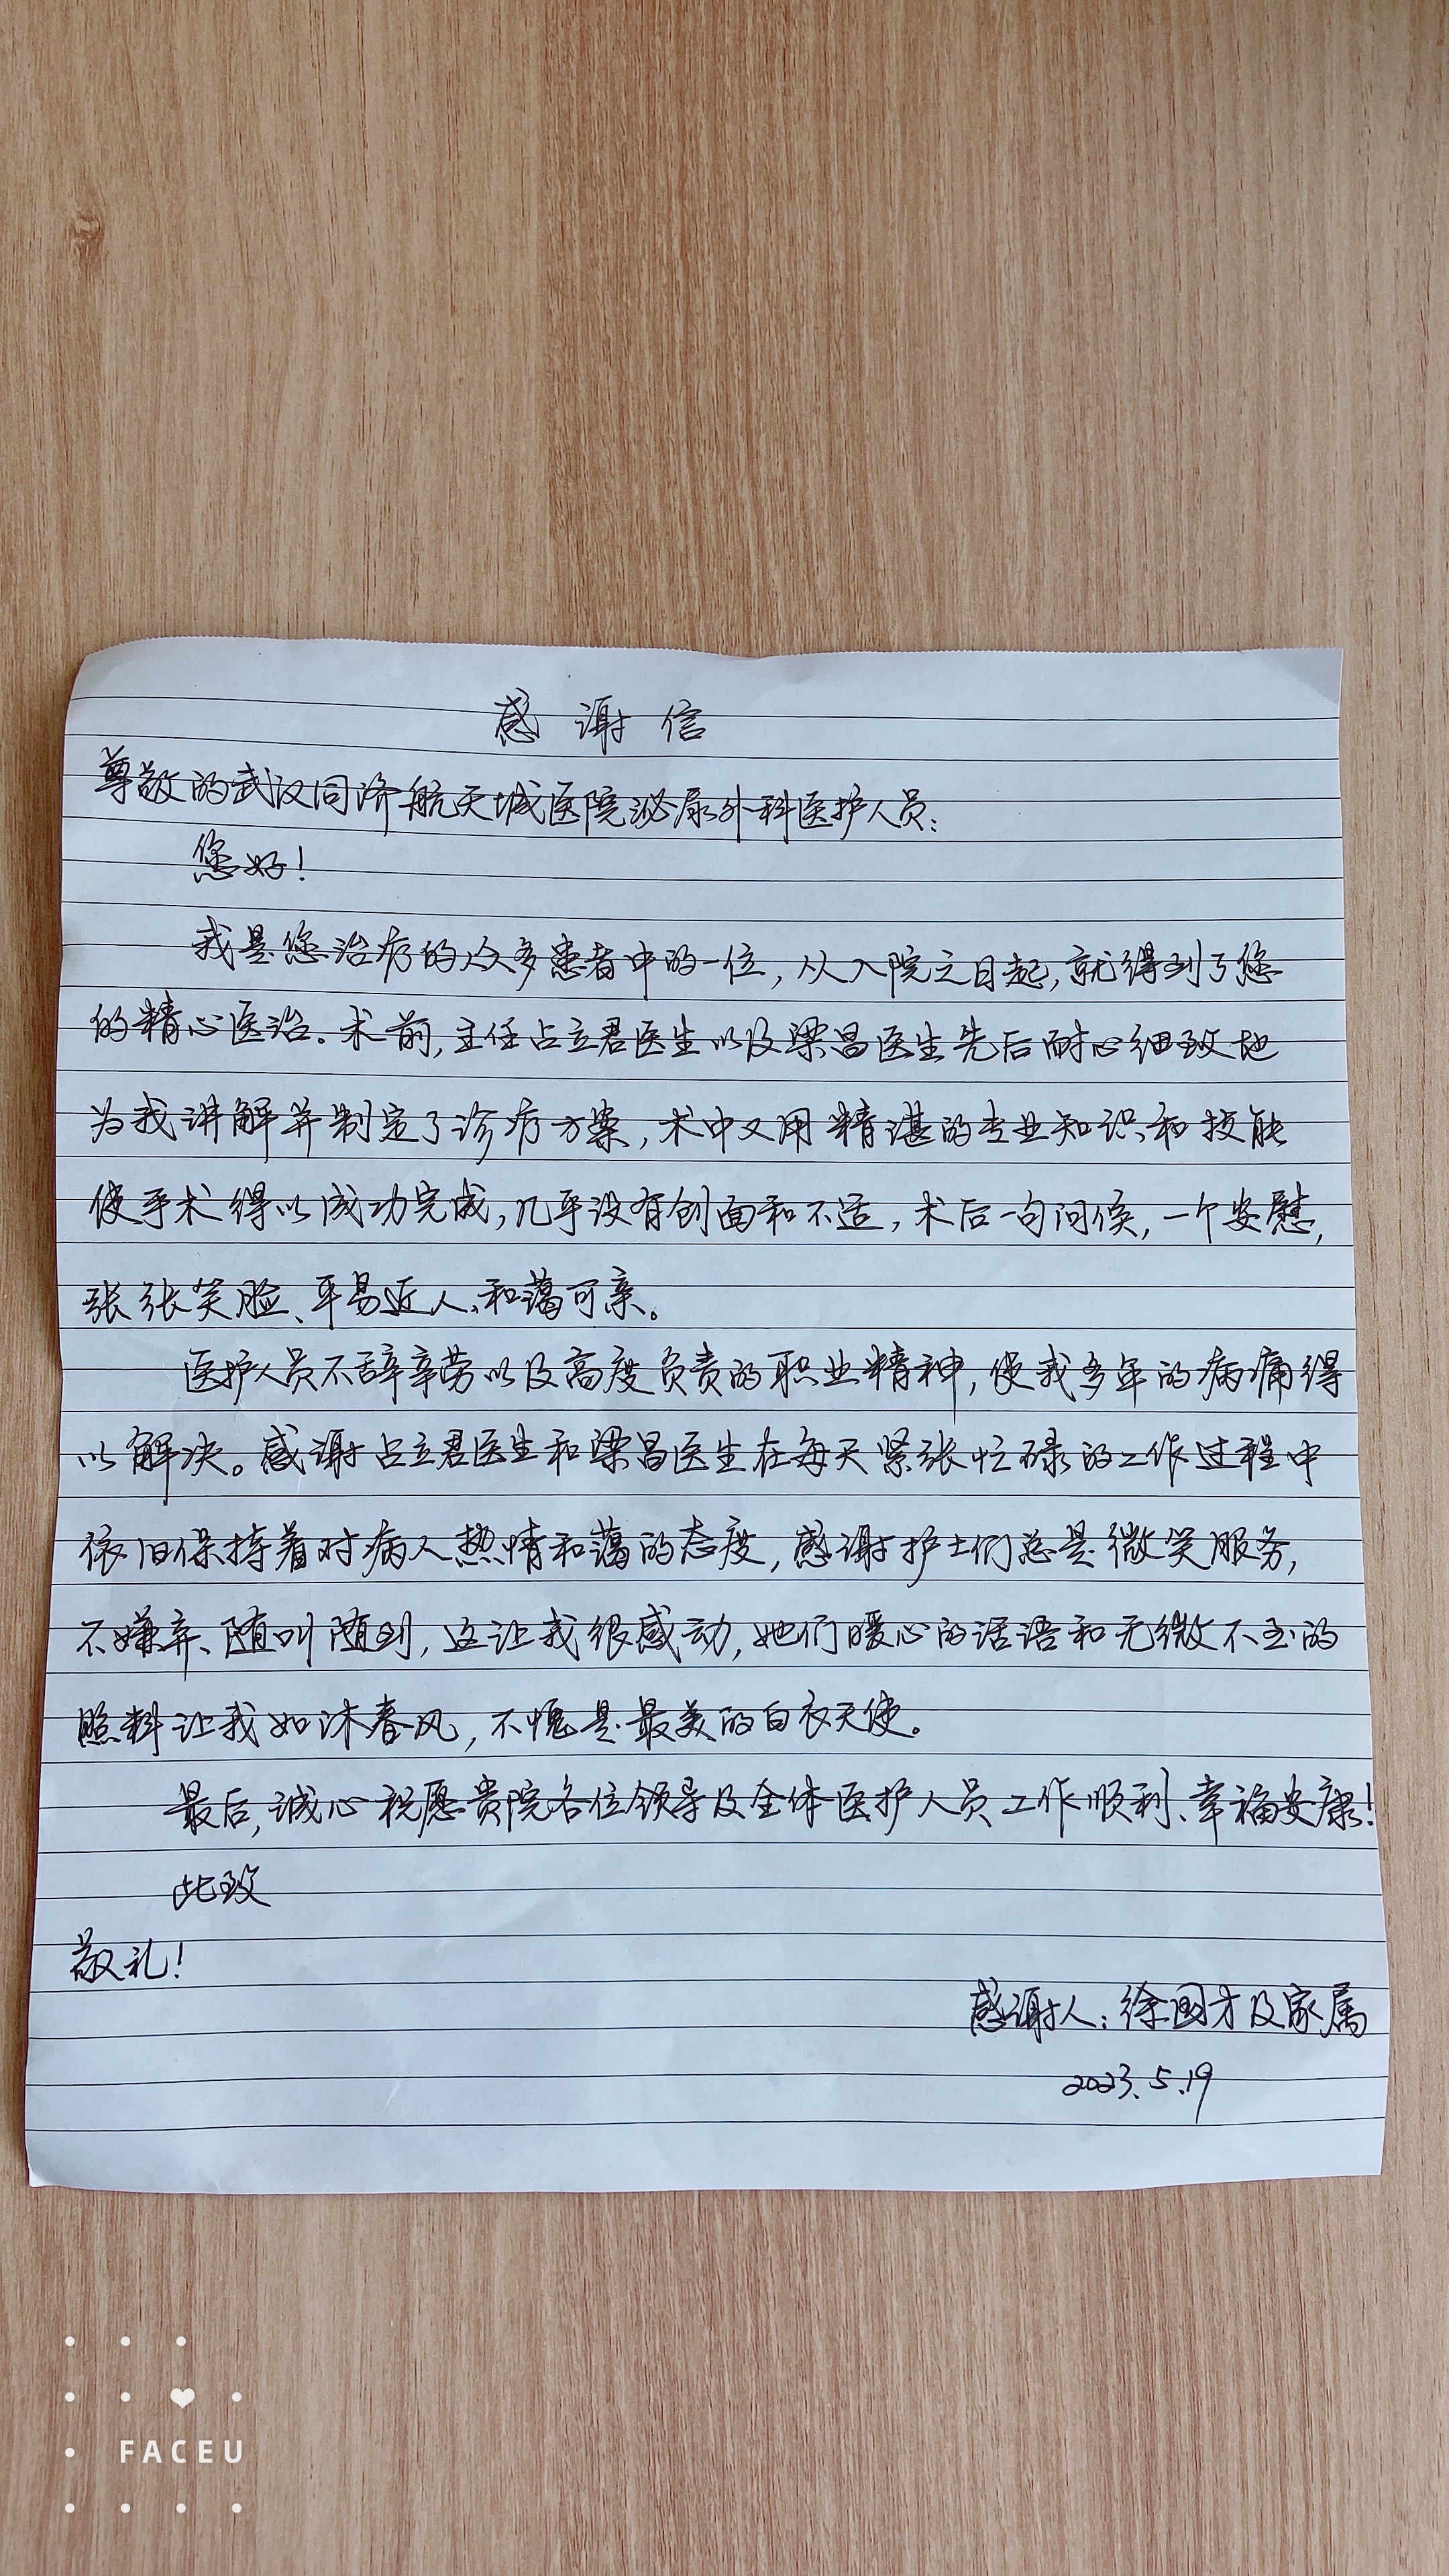 感谢信
尊敬的武汉同济航天城医院泌尿外科医护人员:
您好!
我是您治疗的众多患者中的一位,从入院之日起,就得到了您
的精心医治。术前,主任占立君医生以及梁昌医生先后耐心细致地
为我讲解并制定了诊疗方案,术中又用精湛的专业知识和技能
使手术得以成功完成,几乎没有创面和不适,术后一句问候,一个安慰,
张张笑脸、平易近人、和蔼可亲。
医护人员不辞辛劳以及高度负责的职业精神,使我多年的病痛得
以解决。感谢占立君医生和梁昌医生在每天紧张忙碌的工作过程中
依旧保持着对病人热情和蔼的态度,感谢护士们总是微笑服务,
不嫌弃、随叫随到,这让我很感动,她们暖心的话语和无微不至的
照料让我如沐春风,不愧是最美的白衣天使。
最后,诚心祝愿贵院各位领导及全体医护人员工作顺利、幸福安康!
此致
敬礼!
感谢人:徐国才及家属
2023.5.19
FACEU